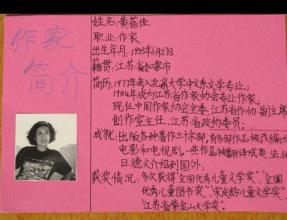 作家
简介
姓名:黄蓓佳
职业:作家
出生年月:1955年6月27日
籍贯:江苏省如皋市
简历:1977年考入北京大学中文系文学专业。
1984年成为江苏省作家协会专业作家,
现任中国作家协会全委、江苏省作协副主席
创作室主任、江苏省政协委员。
成就:出版各种著作三十余部,有多部作品被改编为
电影和电视剧。一些作品被翻译成英、法
日、德文介绍到国外。
获奖情况:多次获得"全国优秀儿童文学奖""全国
优秀儿童图书奖""宋庆龄儿童文学奖"
"江苏省紫金山文学奖"